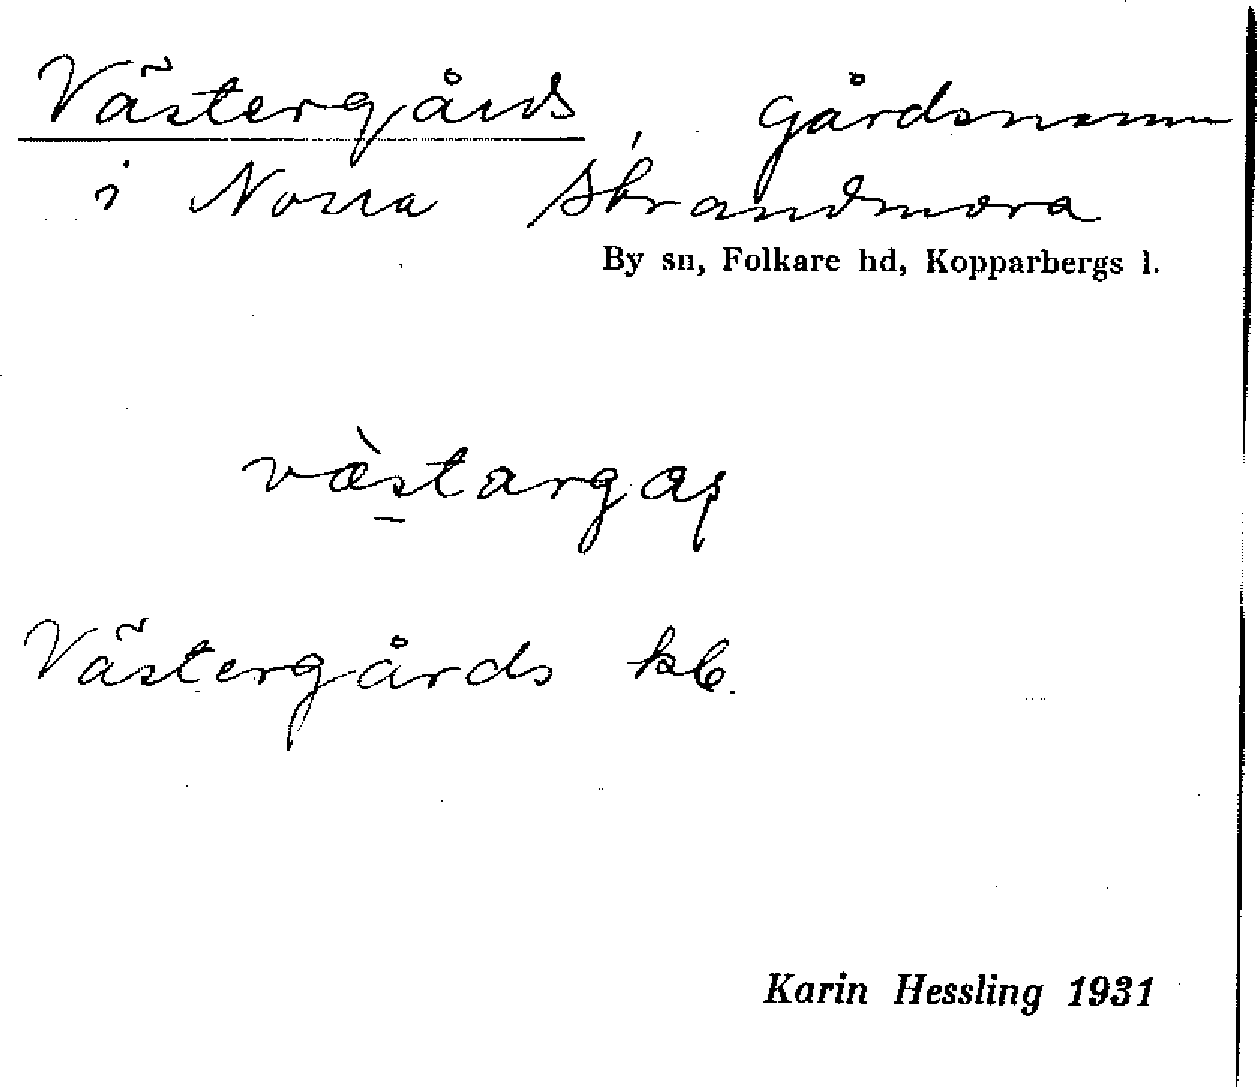 Västergårds, gårdsnamn
i Norra Strandmora
By sn, Folkare hd, Kopparbergs l.
Västergårds kb.
Karin Hessling 1931